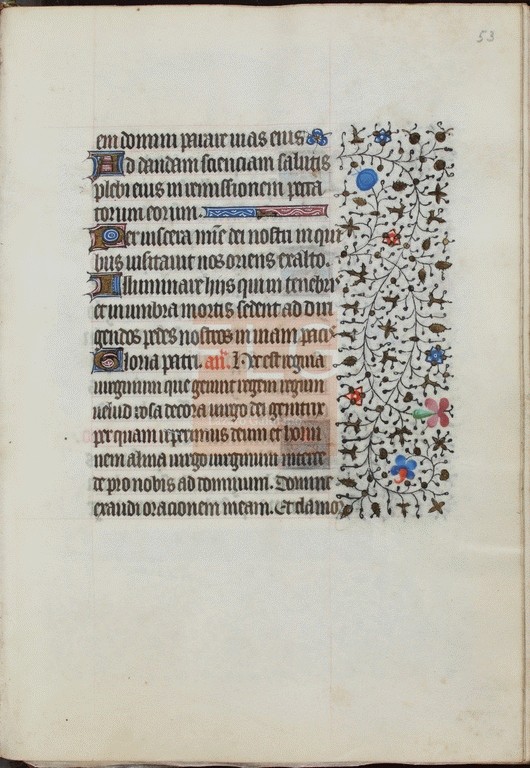 53
em domini parare vias eius
Ad dandam scienciam salutis
plebi eius in remissionem pecca
torum eorum.
Per viscera mie dei nostri in qui
bus visitavit nos oriens exalto.
Illuminare hijs qui in tenebris
et in umbra mortis sedent ad diri
gendos pedes nostros in viam pacis
Gloria patri. an. Hec est regina
virginum que genuit regem regum
velud rosa decora virgo dei genitrix
per quam reperimus deum et homi
nem alma virgo virginum interce
de pro nobis ad dominum. Domine
exaudi oracionem meam. Et clamor